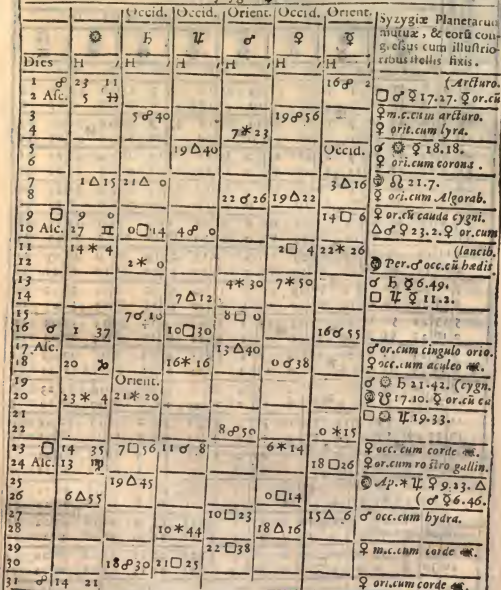 Occid. Occid. Orient. Occid. Orient. Syzygiæ Planetarum
mutuæ, & eorũ con-
☉ ♄ ♃ ♂ ♀ ☿ gressus cum illustrio-
Dies H H H H H H ribus stellis fixis.
1 ☍ 23 11 16 ☍ 2 (Arcturo.
2 Asc. 5 □ ♂ ☿ 17.27. ☿ or.cũ
3 5 ☍ 40 19 ☍ 56 ☿ m.c.cum arcturo.
4 7 ✶ 23 ♀ orit.cum lyra.
5 19 △ 40 Occid. ☌ ☉ ☿ 18.18.
6 ♀ ori.cum corona.
7 1 △ 15 21 △ 0 3 △ 16 ☊ 21.7.
8 22 ☌ 26 19 △ 22 ☿ ori.cum Algorab.
9 □ 9 0 14 □ 6 ♀ or.cũ cauda cygni.
10 Asc. 27 ♊ 0 □ 14 4 ☍ 0 △ ♂ ♀ 23.2. ♀ or.cum
11 14 ✶ 4 2 □ 4 22 ✶ 26 (lancib.
12 2 ✶ 0 Per. ♂ occ.cũ hædis
13 4 ✶ 30 7 ✶ 50 ☌ ♄ ☿ 6.49.
14 7 △ 12 □ ♃ ☿ 11.2.
15 7 ☌ 10 8 □ 0
16 ☌ 1 37 10 □ 30 16 ☌ 55
17 Asc. 13 △ 40 ♂ or.cum cingulo orio.
18 20 ♑ 16 ✶ 16 0 ☌ 38 ♀ occ.cum aculeo ♏.
19 Orient. ☌ ☉ ♄ 21.42. (cygn.
20 23 ✶ 4 21 ✶ 20 ☋ 17.10. ☿ or.cũ ca
21 □ ☉ ♃ 19.33.
22 8 ☍ 50 0 ✶ 15
23 □ 14 35 7 □ 56 11 ☌ 8 6 ✶ 14 ☿ occ.cum corde ♏.
24 Asc. 13 ♍ 18 □ 26 ♀ or.cum rostro gallin.
25 19 △ 45 Ap. ✶ ♃ ♀ 9.23. △
26 6 △ 55 0 □ 14 ( ♂ ☿ 6.46.
27 10 □ 23 15 △ 6 ♂ occ.cum hydra.
28 10 ✶ 44 18 △ 16
29 22 □ 38 ♀ m.c.cum corde ♏.
30 18 ☍ 30 21 □ 25
31 ☍ 14 21 ♀ ori.cum corde ♏.